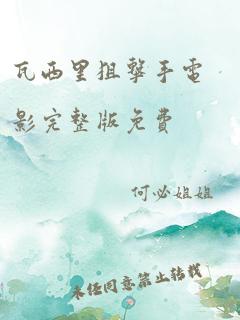 瓦西里狙擊手電
影完整版免費
何必姐姐
未经同意禁止转载